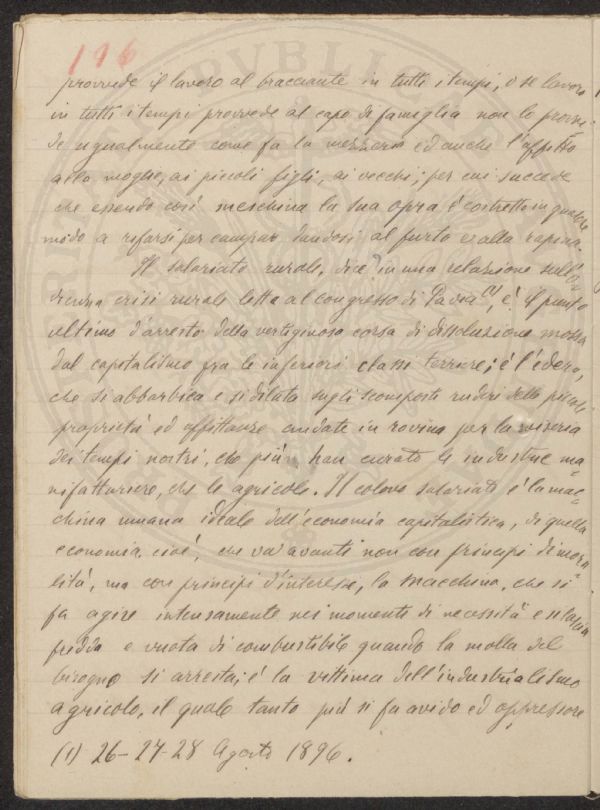 196
provvede il lavoro al bracciante in tutti i tempi, o se lavoro
in tutti i tempi provvede al capo di famiglia non lo provve-
de ugualmente come fa la mezzeria ed anche l'affitto
alla moglie, ai piccoli figli, ai vecchi; per cui succede
che essendo così meschina la sua opra è costretto in qualche
modo a rifarsi per campar dandosi al furto e alla rapina.
Il salariato rurale, dice in una relazione sull'o-
dierna crisi rurale letta al congresso di Pavia (1), è il punto
ultimo d'arresto della vertiginosa corsa di dissoluzione mossa
dal capitalismo fra le inferiori classi terriere; è l'edera,
che si abbarbica e si dilata sugli scomposti ruderi delle piccole
proprietà ed affittanze andate in rovina per la miseria
dei tempi nostri, che più han curato le industrie ma-
nifatturiere, che le agricole. Il colono salariato è la mac-
china umana ideale dell'economia capitalistica, di quella
economia, cioè, che va avanti non con principi di mora-
lità, ma con principi d'interesse, la macchina, che si
fa agire intensamente nei momenti di necessità e si lascia
fredda e vuota di combustibile quando la molla del
bisogno si arresta; è la vittima dell'industrialismo
agricolo, il quale tanto più si fa avido ed oppressore
(1) 26-27-28 Agosto 1896.
REPVBLICAE